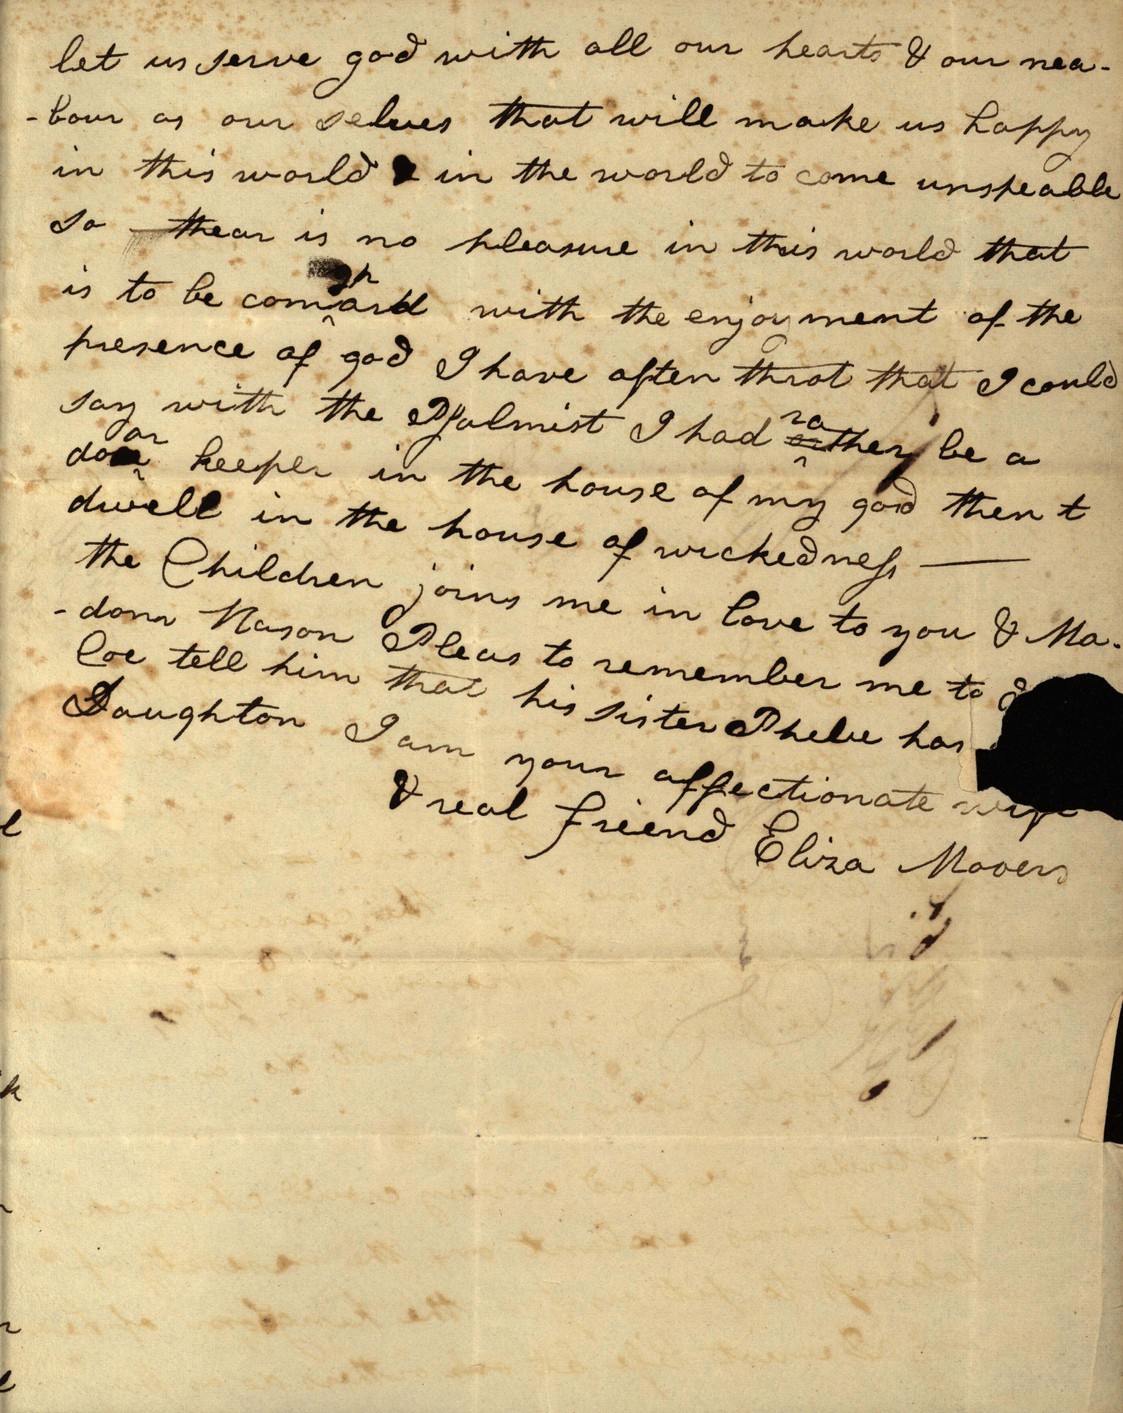 let us serve god with all our hearts & our nea-
-bour as our selves that will make us happy
in this world & in the world to come unspeable
so thear is no pleasure in this world that
is to be compard with the enjoyment of the
presence of god I have often throt that I could
say with the Psalmist I had rather be a
door keeper in the house of my god then t
dwell in the house of wickedness —
the Children joins me in love to you & Ma-
-dom Nason Pleas to remember me to
Coe tell him that his sister Phebe has
Daughton I am your affectionate wife
& real friend Eliza Moovers